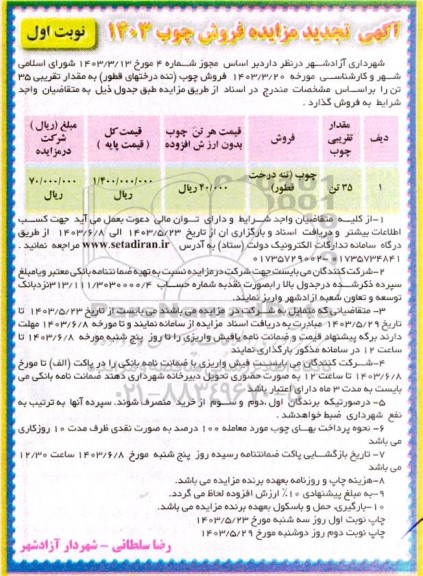 آگهی تجدید مزایده فروش چوب ۱۴۰۳
نوبت اول
شهرداری آزادشهر درنظر داردبر اساس مجوز شماره ۴ مورخ ۱۴۰۳/۳/۱۳ شورای اسلامی
شهر و کارشناسی مورخه ۱۴۰۳/۳/۲۰ فروش چوب (تنه درختهای قطور) به مقدار تقریبی ۳۵
تن را براساس مشخصات مندرج در اسناد از طریق مزایده طبق جدول ذیل به متقاضیان واجد
شرایط به فروش گذارد .
ردیف | مقدار تقریبی چوب | فروش | قیمت هر تن چوب بدون ارزش افزوده | قیمت کل ( قیمت پایه ) | مبلغ (ریال ) شرکت درمزایده
۱ | ۳۵ تن | چوب (تنه درخت قطور) | ۴۰/۰۰۰ ریال | ۱/۴۰۰/۰۰۰/۰۰۰ ریال | ۷۰/۰۰۰/۰۰۰ ریال
۱-از کلیه متقاضیان واجد شرایط و دارای توان مالی دعوت بعمل می آید جهت کسب
اطلاعات بیشتر و دریافت اسناد و بارگزاری ان از تاریخ ۱۴۰۳/۵/۲۳ الی ۱۴۰۳/۶/۸ از طریق
درگاه سامانه تدارکات الکترونیک دولت (ستاد) به آدرس www.setadiran.ir مراجعه نمائید .
۰۱۷۳۵۷۳۴۸۴۱-۰۱۷۳۵۷۲۹۰۰۲
۲-شرکت کنندگان می بایست جهت شرکت درمزایده نسبت به تهیه ضمانتنامه بانکی معتبر ویامبلغ
سپرده ذکرشده درجدول بالا رابصورت نقدبه شماره حساب ۳۱۳/۱۱۱/۳۰۳۰۰۰۰/۴ نزدبانک
توسعه و تعاون شعبه ازادشهر واریز نمایند.
۳- متقاضیانی که متمایل به شرکت در مزایده می باشند می بایست از تاریخ ۱۴۰۳/۵/۲۳ تا
تاریخ ۱۴۰۳/۵/۲۹ مبادرت به دریافت اسناد مزایده از سامانه نمایند و تا مورخه ۱۴۰۳/۶/۸ مهلت
دارند برگه پیشنهاد قیمت و ضمانت نامه یافیش واریزی را تا روز پنج شنبه مورخه ۱۴۰۳/۶/۸ تا
ساعت ۱۲ در سامانه مذکور بارگذاری نمایند
۴-شرکت کنندگان می بایست فیش واریزی یا ضمانت نامه بانکی را در پاکت (الف) تا مورخ
۱۴۰۳/۶/۸ تا ساعت ۱۲ به صورت حضوری تحویل دبیرخانه شهرداری دهند ضمانت نامه بانکی می
بایست به مدت ۳ ماه دارای اعتبار باشد
۵- درصورتیکه برندگان اول ،دوم و سوم از خرید منصرف شوند. سپرده آنها به ترتیب به
نفع شهرداری ضبط خواهدشد .
۶- نحوه پرداخت بهای چوب مورد معامله ۱۰۰ درصد به صورت نقدی ظرف مدت ۱۰ روزکاری
می باشد
۷- تاریخ بازگشایی پاکت ضمانتنامه رسیده روز پنج شنبه مورخ ۱۴۰۳/۶/۸ ساعت ۱۲/۳۰ می
باشد
۸-هزینه چاپ و روزنامه بعهده برنده مزایده می باشد.
۹-به مبلغ پیشنهادی ۱۰٪ ارزش افزوده لحاظ می گردد.
۱۰-بارگیری، حمل و باسکول بعهده برنده مزایده می باشد.
چاپ نوبت اول روز سه شنبه مورخ ۱۴۰۳/۵/۲۳
چاپ نوبت دوم روز دوشنبه مورخ ۱۴۰۳/۵/۲۹
رضا سلطانی – شهردار آزادشهر